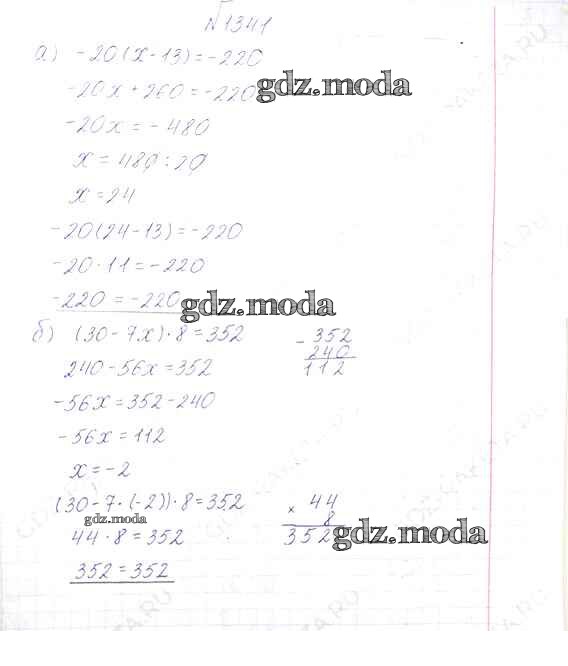 №1341
а) -20(x-13)=-220
-20x+260=-220
gdz.moda
-20x=-480
x=480:20
x=24
-20(24-13)=-220
-20·11=-220
-220=-220
gdz.moda
б) (30-7x)·8=352
-352
240
112
240-56x=352
-56x=352-240
-56x=112
x=-2
(30-7·(-2))·8=352
×44
8
352
gdz.moda
gdz.moda
44·8=352
352=352